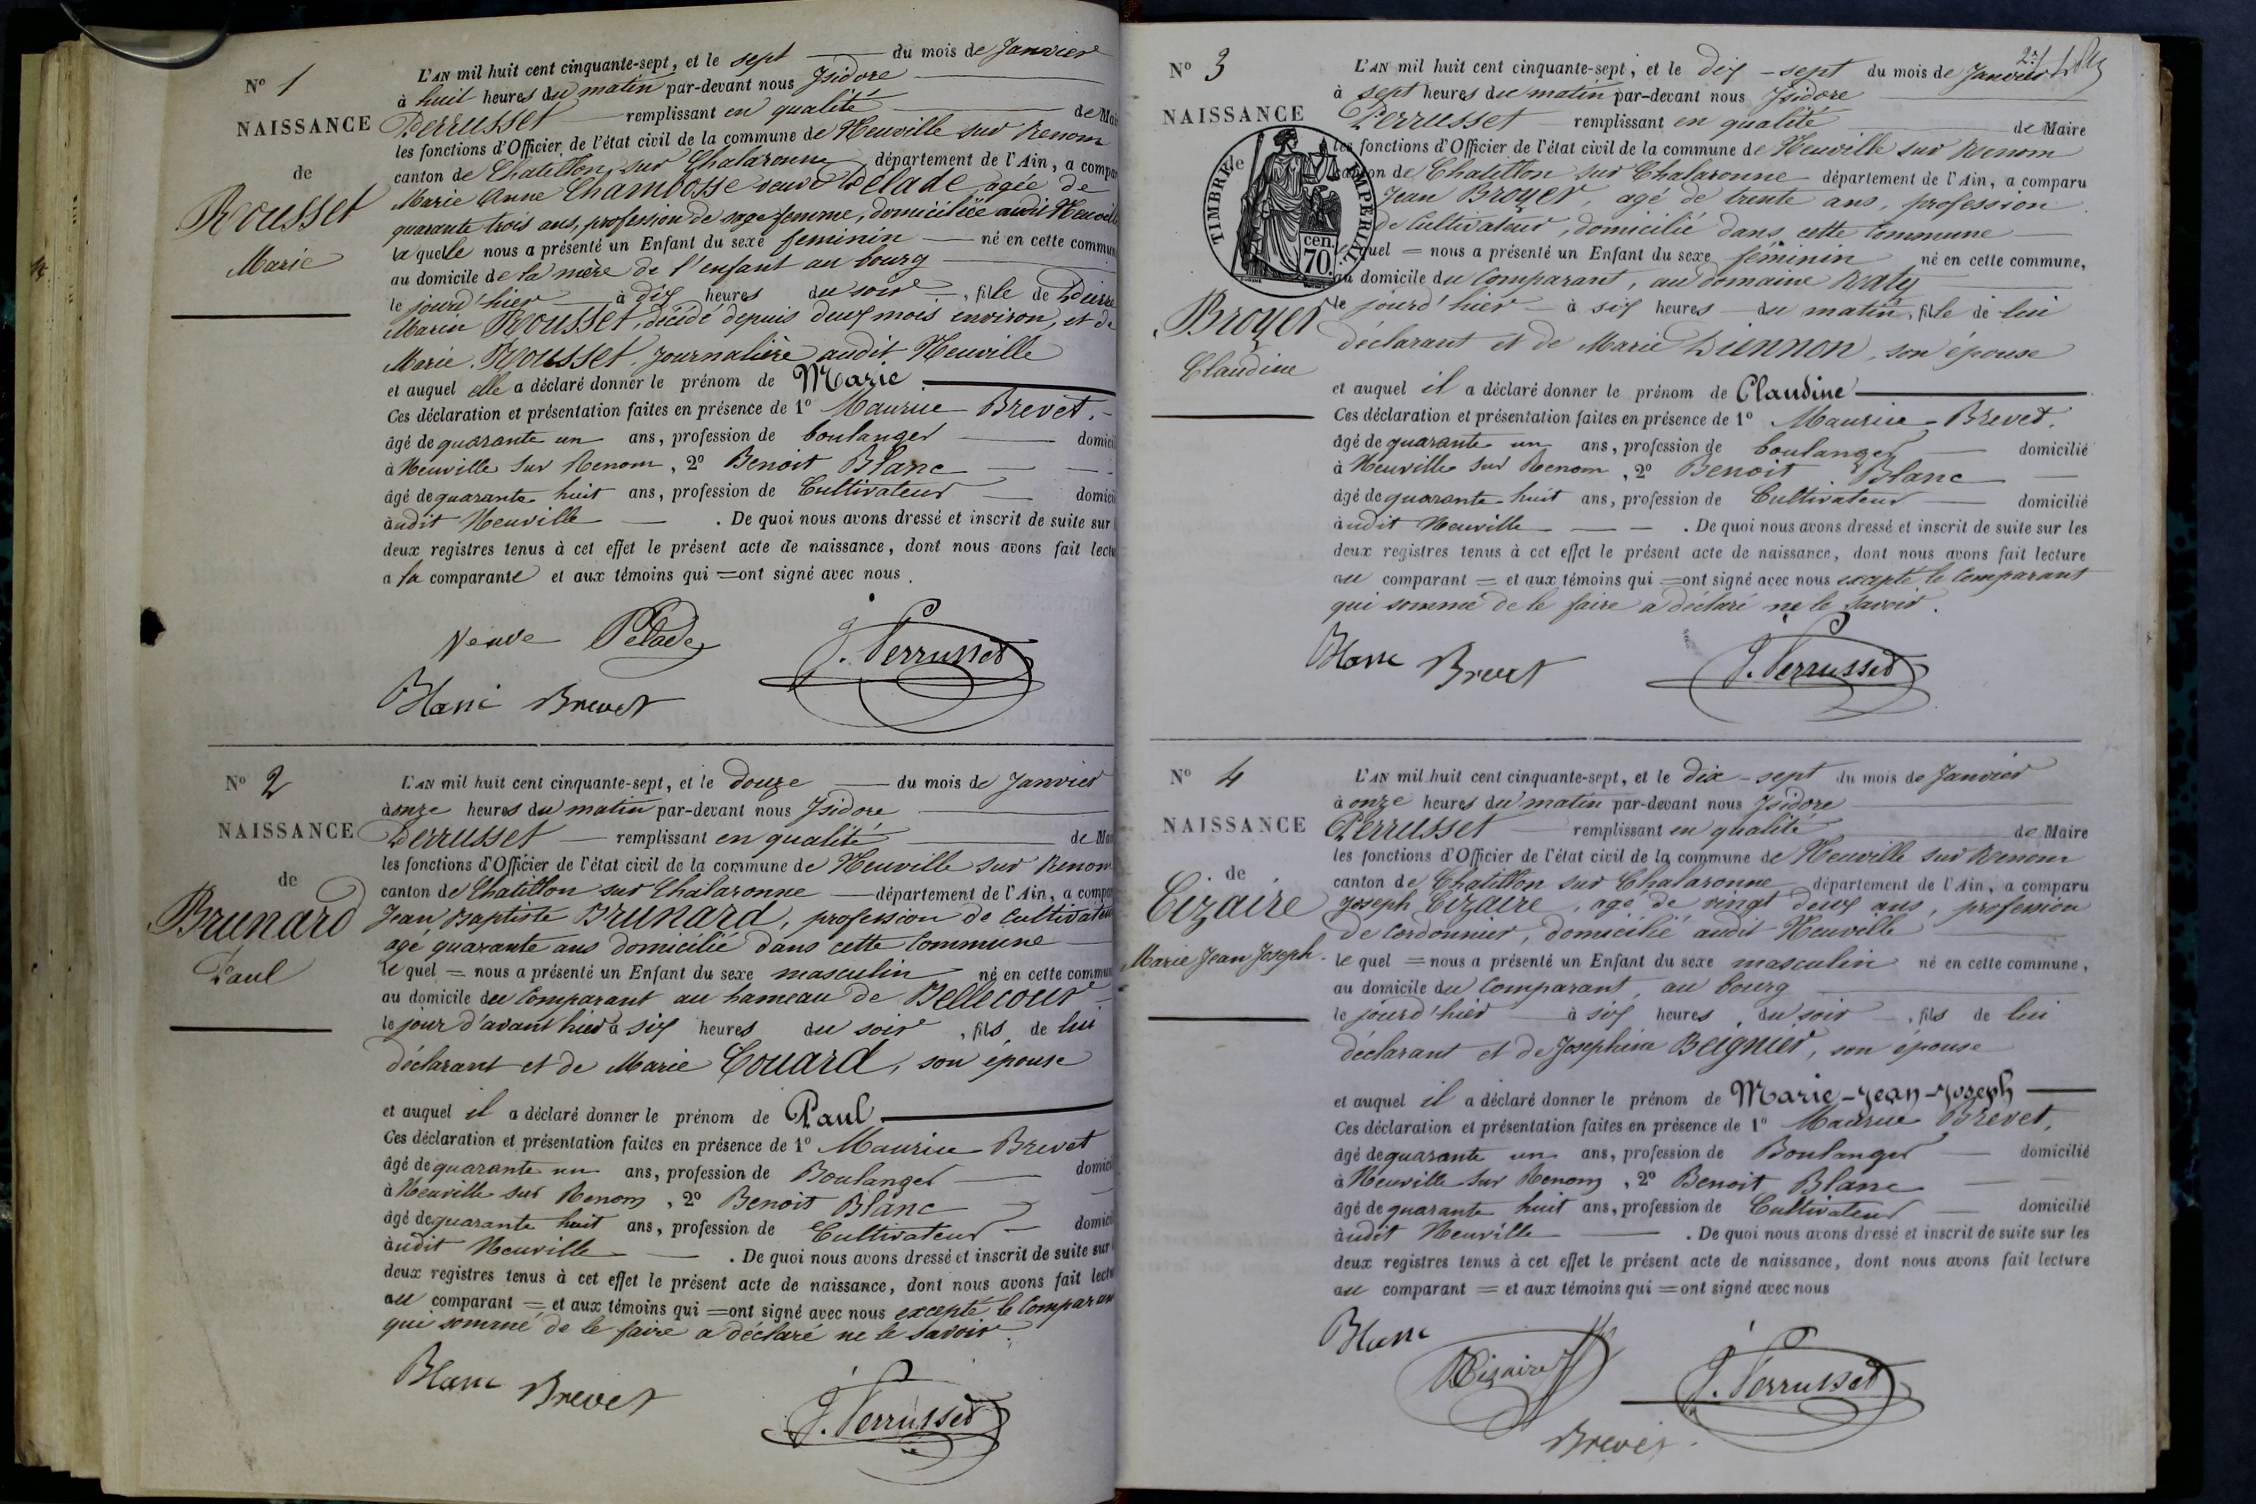 N° 1
NAISSANCE
de
Rousset
Marie
L'AN mil huit cent cinquante-sept, et le sept du mois de Janvier
à huit heures du matin par-devant nous Isidore
Perrusset remplissant en qualité de Mai
les fonctions d'Officier de l'état civil de la commune de Neuville sur Renom
canton de Chatillon sur Chalaronne département de l'Ain, a compa
Marie Anne Chambosse veuve Pelade, agée de
quarante trois ans, profession de sage femme, domiciliée audit Neuville
la quelle nous a présenté un Enfant du sexe feminin né en cette commun
au domicile de la mère de l'enfant au bourg
le jourd'hier à dix heures du soir, fille de Pierre
Marin Rousset, décédé depuis deux mois environ, et de
Marie Rousset, journalière audit Neuville
et auquel elle a déclaré donner le prénom de Marie
Ces déclaration et présentation faites en présence de 1° Maurice Brevet,
âgé de quarante un ans, profession de boulanger domici
à Neuville sur Renom, 2° Benoit Blanc
âgé de quarante huit ans, profession de Cultivateur domici
audit Neuville . De quoi nous avons dressé et inscrit de suite sur
deux registres tenus à cet effet le présent acte de naissance, dont nous avons fait lectu
a la comparante et aux témoins qui = ont signé avec nous.
Veuve Pelade
J. Perrusset
Blanc Brevet
N° 2
NAISSANCE
de
Brunard
Paul
L'AN mil huit cent cinquante-sept, et le douze du mois de Janvier
à onze heures du matin par-devant nous Isidore
Perrusset remplissant en qualité de Mai
les fonctions d'Officier de l'état civil de la commune de Neuville sur Renom
canton de Chatillon sur Chalaronne département de l'Ain, a compa
Jean Baptiste Brunard, profession de cultivateur
agé quarante ans domicilié dans cette Commune
le quel = nous a présenté un Enfant du sexe masculin né en cette commun
au domicile du Comparant au hameau de Bellecour
le jour d'avant hier à six heures du soir, fils de lui
déclarant et de Marie Couard, son épouse
et auquel il a déclaré donner le prénom de Paul
Ces déclaration et présentation faites en présence de 1° Maurice Brevet
âgé de quarante un ans, profession de Boulanger domici
à Neuville sur Renom, 2° Benoit Blanc
âgé de quarante huit ans, profession de Cultivateur domici
audit Neuville . De quoi nous avons dressé et inscrit de suite sur
deux registres tenus à cet effet le présent acte de naissance, dont nous avons fait lectu
au comparant = et aux témoins qui = ont signé avec nous excepté le Comparant
qui sommé de le faire a déclaré ne le savoir.
Blanc Brevet
J. Perrusset
N° 3
NAISSANCE
de
TIMBRE IMPERIAL
70 cen.
Broyer
Claudine
L'AN mil huit cent cinquante-sept, et le dix-sept du mois de Janvier
à sept heures du matin par-devant nous Isidore
Perrusset remplissant en qualité de Maire
les fonctions d'Officier de l'état civil de la commune de Neuville sur Renom
canton de Chatillon sur Chalaronne département de l'Ain, a comparu
Jean Broyer, agé de trente ans, profession
de Cultivateur, domicilié dans cette Commune
le quel = nous a présenté un Enfant du sexe féminin né en cette commune,
au domicile du Comparant, au domaine Raty
le jourd'hier à six heures du matin, fille de lui
déclarant et de Marie Diennon, son épouse
et auquel il a déclaré donner le prénom de Claudine
Ces déclaration et présentation faites en présence de 1° Maurice Brevet,
âgé de quarante un ans, profession de boulanger domicilié
à Neuville sur Renom, 2° Benoit Blanc
âgé de quarante huit ans, profession de Cultivateur domicilié
audit Neuville . De quoi nous avons dressé et inscrit de suite sur les
deux registres tenus à cet effet le présent acte de naissance, dont nous avons fait lecture
au comparant = et aux témoins qui = ont signé avec nous excepté le Comparant
qui sommé de le faire a déclaré ne le savoir.
Blanc Brevet
J. Perrusset
N° 4
NAISSANCE
de
Cizaire
Marie Jean Joseph.
L'AN mil huit cent cinquante-sept, et le dix-sept du mois de Janvier
à onze heures du matin par-devant nous Isidore
Perrusset remplissant en qualité de Maire
les fonctions d'Officier de l'état civil de la commune de Neuville sur Renom
canton de Chatillon sur Chalaronne département de l'Ain, a comparu
Joseph Cizaire, agé de vingt deux ans, profession
de Cordonnier, domicilié audit Neuville
le quel = nous a présenté un Enfant du sexe masculin né en cette commune,
au domicile du Comparant, au bourg
le jourd'hier à six heures du soir, fils de lui
déclarant et de Josephine Beignier, son épouse
et auquel il a déclaré donner le prénom de Marie-Jean-Joseph
Ces déclaration et présentation faites en présence de 1° Maurice Brevet,
âgé de quarante un ans, profession de Boulanger domicilié
à Neuville sur Renom, 2° Benoit Blanc
âgé de quarante huit ans, profession de Cultivateur domicilié
audit Neuville . De quoi nous avons dressé et inscrit de suite sur les
deux registres tenus à cet effet le présent acte de naissance, dont nous avons fait lecture
au comparant = et aux témoins qui = ont signé avec nous
Blanc
Cizaire
J. Perrusset
Brevet